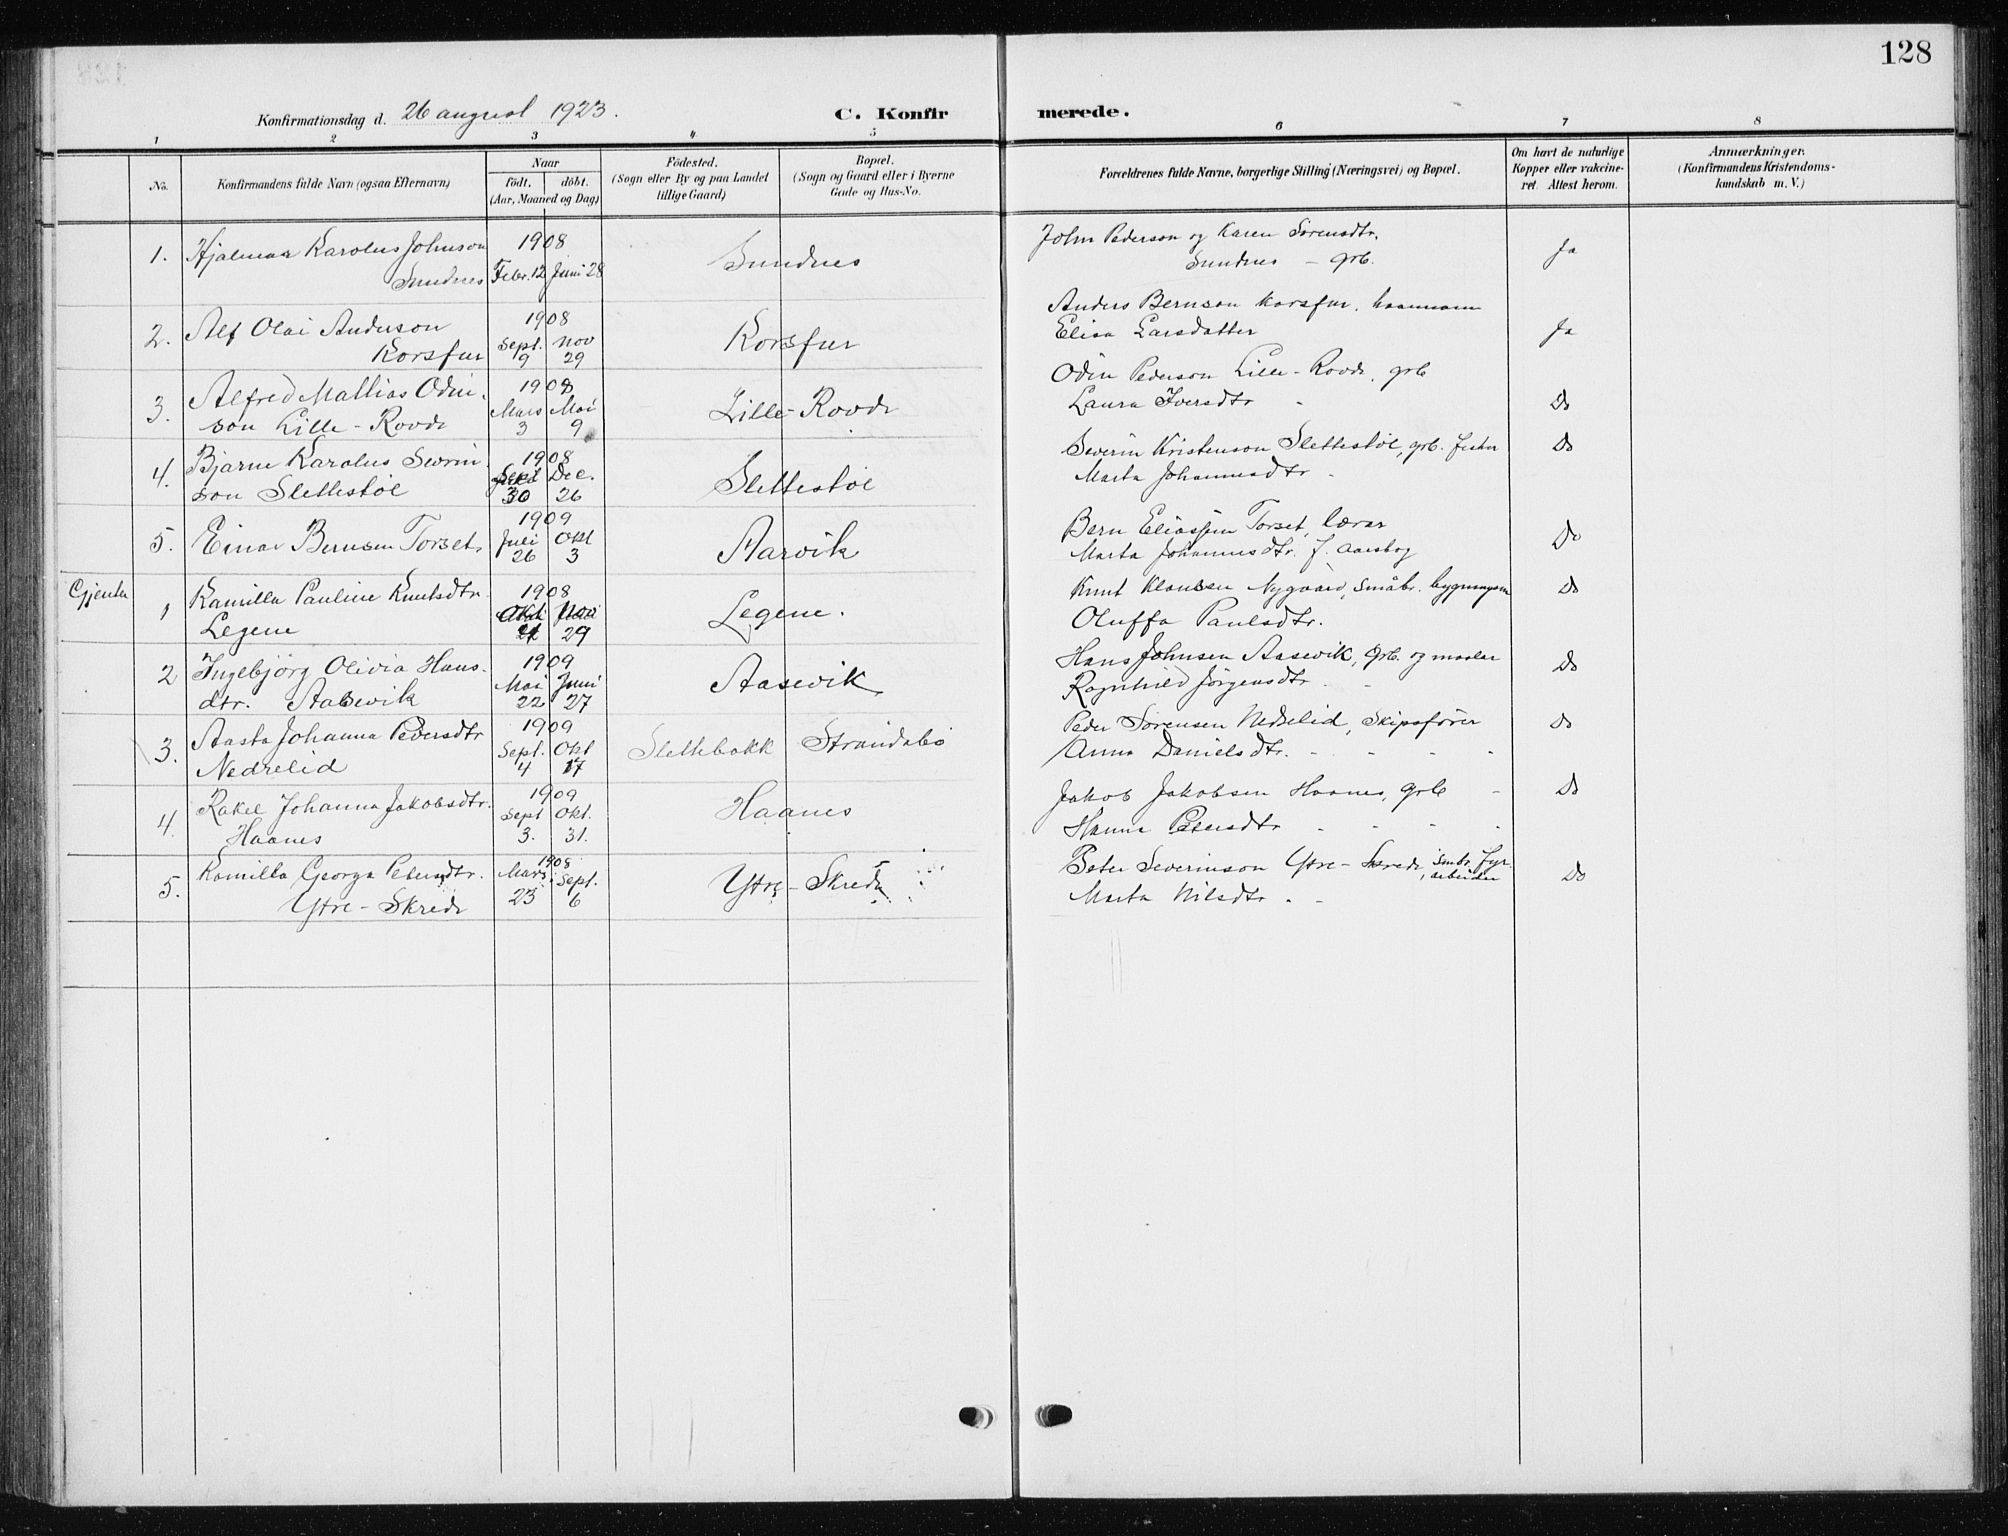 128
Konfirmationsdag d. 26 august 1923.
C. Konfirmerede.
1 2 3 4 5 6 7 8
No.
Konfirmandens fulde Navn (ogsaa Efternavn)
Naar
födt. döbt.
(Aar, Maaned og Dag)
Födested.
(Sogn eller By og paa Landet
tillige Gaard)
Bopæl.
(Sogn og Gaard eller i Byerne
Gade og Hus-No.
Forældrenes fulde Navne, borgerlige Stilling (Næringsvei) og Bopæl.
Om havt de naturlige
Kopper eller vakcine-
ret. Attest herom.
Anmærkninger.
(Konfirmandens Kristendoms-
kundskab m. V.)
1. Hjalmar Karolus Johnson
Sundnes
1908
Febr. 12 Juni 28
Sundnes
John Pederson og Karen Sørensdtr.
Sundnes - grb.
Ja
2. Alf Olai Anderson
Korsfur
1908
Sept. 9 Nov 29
Korsfur
Anders Bernson Korsfur.
Elisa Larsdatter
Ja
3. Alfred Mathias Odin-
son Lille-Rovde
1908
Mars 3 Mai 9
Lille-Rovde
Odin Pederson Lille-Rovde, grb
Laura Iversdtr -
Do
4. Bjarne Karolus Sevrin
son Slettestøl
1908
Sept 30 Dec. 26
Slettestøl
Severin Kristenson Slettestøl, grb. fisker
Marta Johannesdtr -
Do
5. Einar Bernsen Torset.
1909
Juli 26 Okt 3
Aarvik
Bern Eliassen Torset, lærar
Marta Johannesdtr. f. Aarskog
Do
Gjenter
1 Kamilla Pauline Knutsdtr.
Legene
1908
29
Legene.
Knut Klausen Nygaard, småbr.
Oluffa Paulsdtr.
Do
2 Ingebjörg Olivia Hans-
dtr. Aasevik
1909
Mai 22 Juni 27
Aasevik
Hans Johnsen Aasevik, Grb. og maalar
Ragnhild Jörgensdtr - -
Do
3. Aasta Johanna Pedersdtr
Nedrelid
1909
Sept. 4 Okt 17
Slettebakk Strandabø
Peder Sørensen Nedrelid, Skipsfører
Anna Danielsdtr. - - - -
Do
4. Rakel Johanna Jakobsdtr.
Haanes
1909
Sept 3. Okt. 31.
Haanes
Jakob Jakobsen Haanes, grb -
Hanna Petersdtr - - - -
Do
5. Kamilla Georga Petersdtr.
Ytre-Skrede
1908
Mars 23 Sept. 6
Ytre-Skrede
Peter Severinson Ytre-Skrede, smbr. fyr-
arbeider
Marta Nilsdtr - -
Do